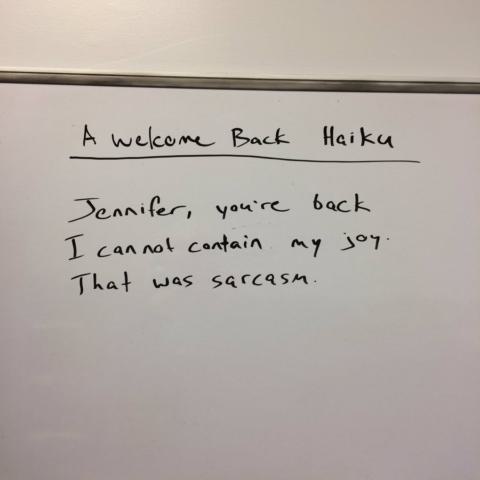 A Welcome Back Haiku
Jennifer, you're back
I cannot contain my joy.
That was sarcasm.